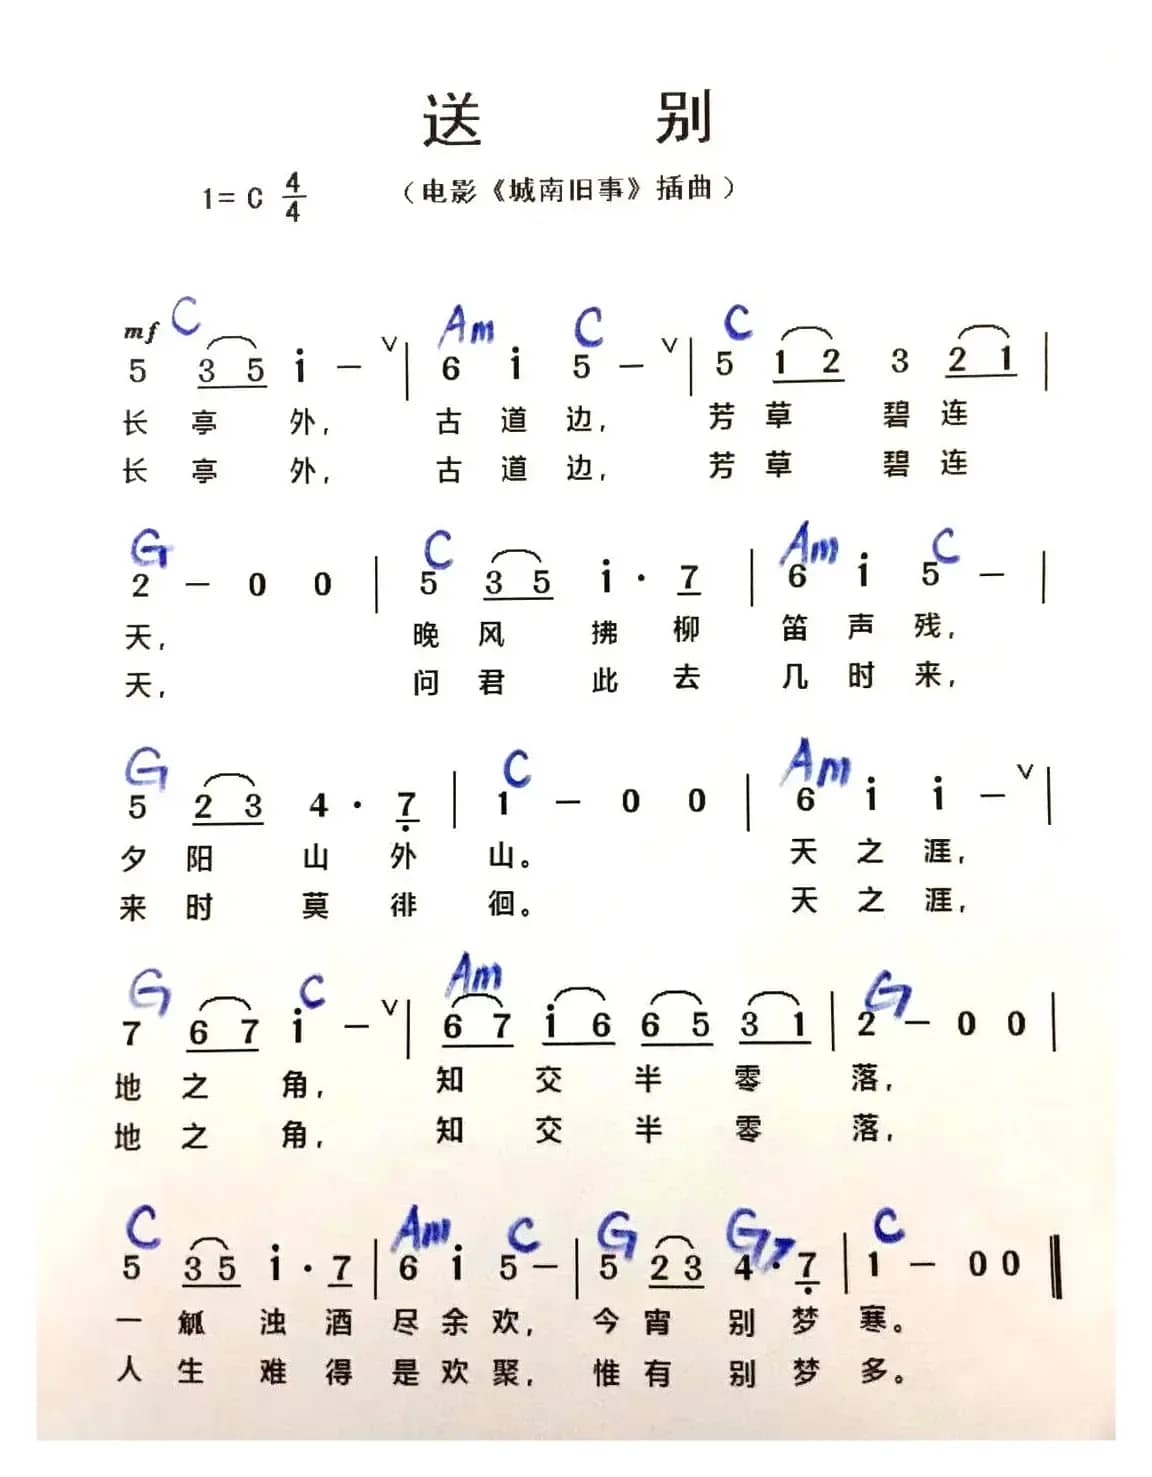 送 别
1= C 4/4 （电影《城南旧事》插曲）
mf C Am C C
5 3 5 i — ∨ | 6 i 5 — ∨ | 5 1 2 3 2 1 |
长 亭 外， 古 道 边， 芳 草 碧 连
长 亭 外， 古 道 边， 芳 草 碧 连
G C Am C
2 — 0 0 | 5 3 5 i · 7 | 6 i 5 — |
天， 晚 风 拂 柳 笛 声 残，
天， 问 君 此 去 几 时 来，
G C Am
5 2 3 4 · 7 | 1 — 0 0 | 6 i i — ∨ |
夕 阳 山 外 山。 天 之 涯，
来 时 莫 徘 徊。 天 之 涯，
G C Am G
7 6 7 i — ∨ | 6 7 i 6 6 5 3 1 | 2 — 0 0 |
地 之 角， 知 交 半 零 落，
地 之 角， 知 交 半 零 落，
C Am C G G7 C
5 3 5 i · 7 | 6 i 5 — | 5 2 3 4 · 7 | 1 — 0 0 ‖
一 觚 浊 酒 尽 余 欢， 今 宵 别 梦 寒。
人 生 难 得 是 欢 聚， 惟 有 别 梦 多。